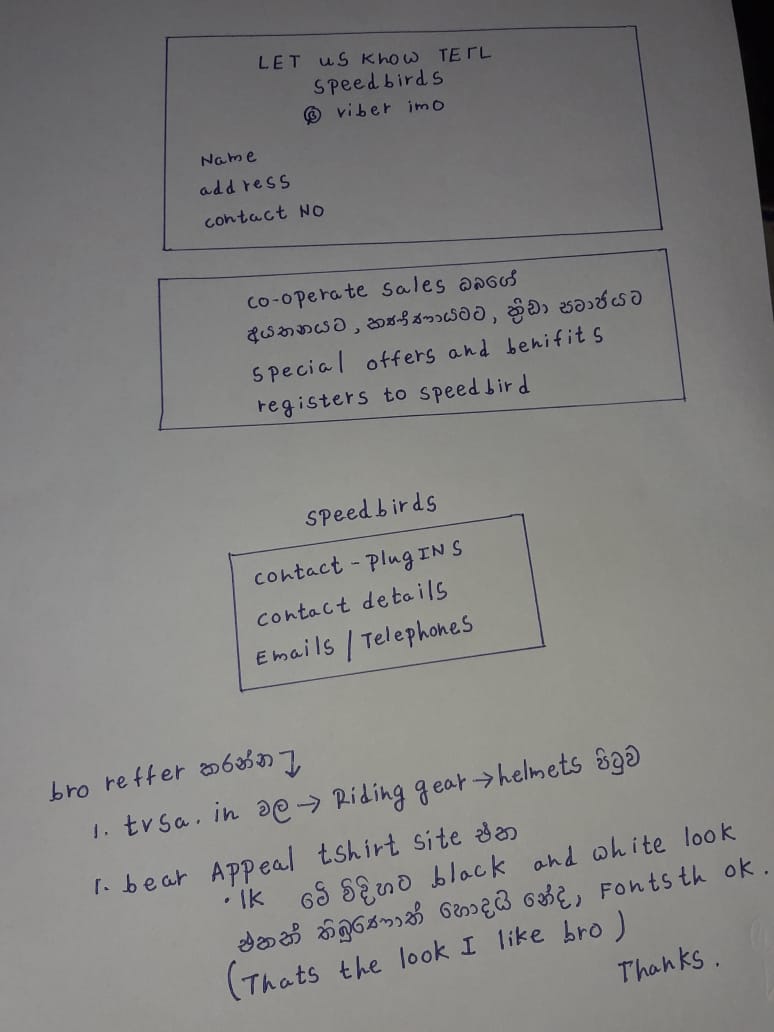 LET us Know TETL
speedbirds
@ viber imo
Name
address
contact NO
co-operate sales ඔබගේ
අයතනයට, කාර්යාලයට, ක්‍රීඩා සමාජයට
special offers and benifits
registers to speedbird
speedbirds
contact - plugINS
contact details
Emails / Telephones
bro reffer කරන්න ↴
1. tvsa.in වල → Riding gear → helmets පිටුව
1. bear Appeal tshirt site එක
• 1k මේ විදිහට black and white look
එකක් තිබුනොත් හොදයි නේද, Fontsth ok.
(Thats the look I like bro)
Thanks.